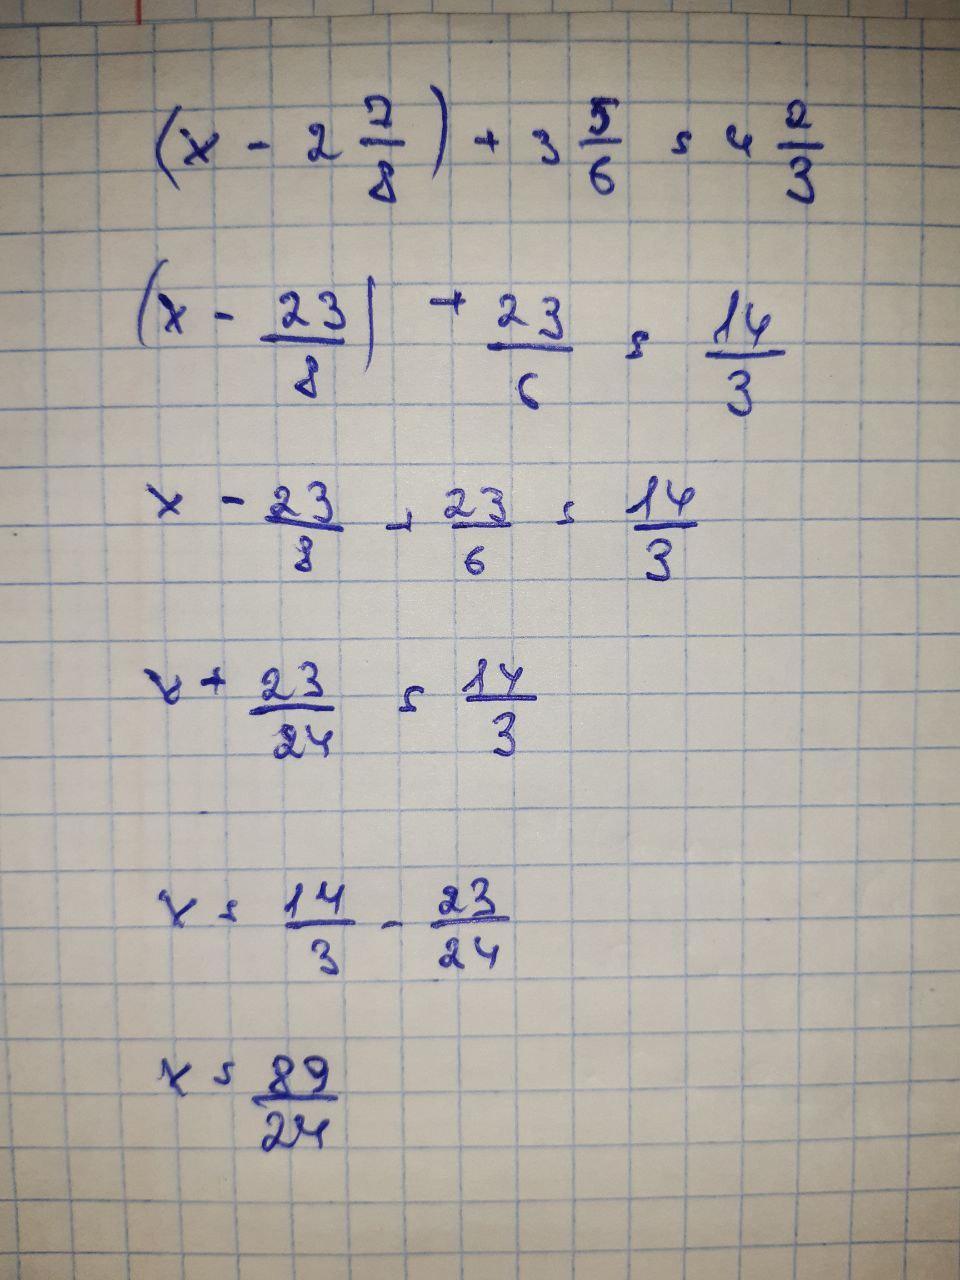 (x - 2 7/8) + 3 5/6 = 4 2/3
(x - 23/8) + 23/6 = 14/3
x - 23/8 + 23/6 = 14/3
x + 23/24 = 14/3
x = 14/3 - 23/24
x = 89/24